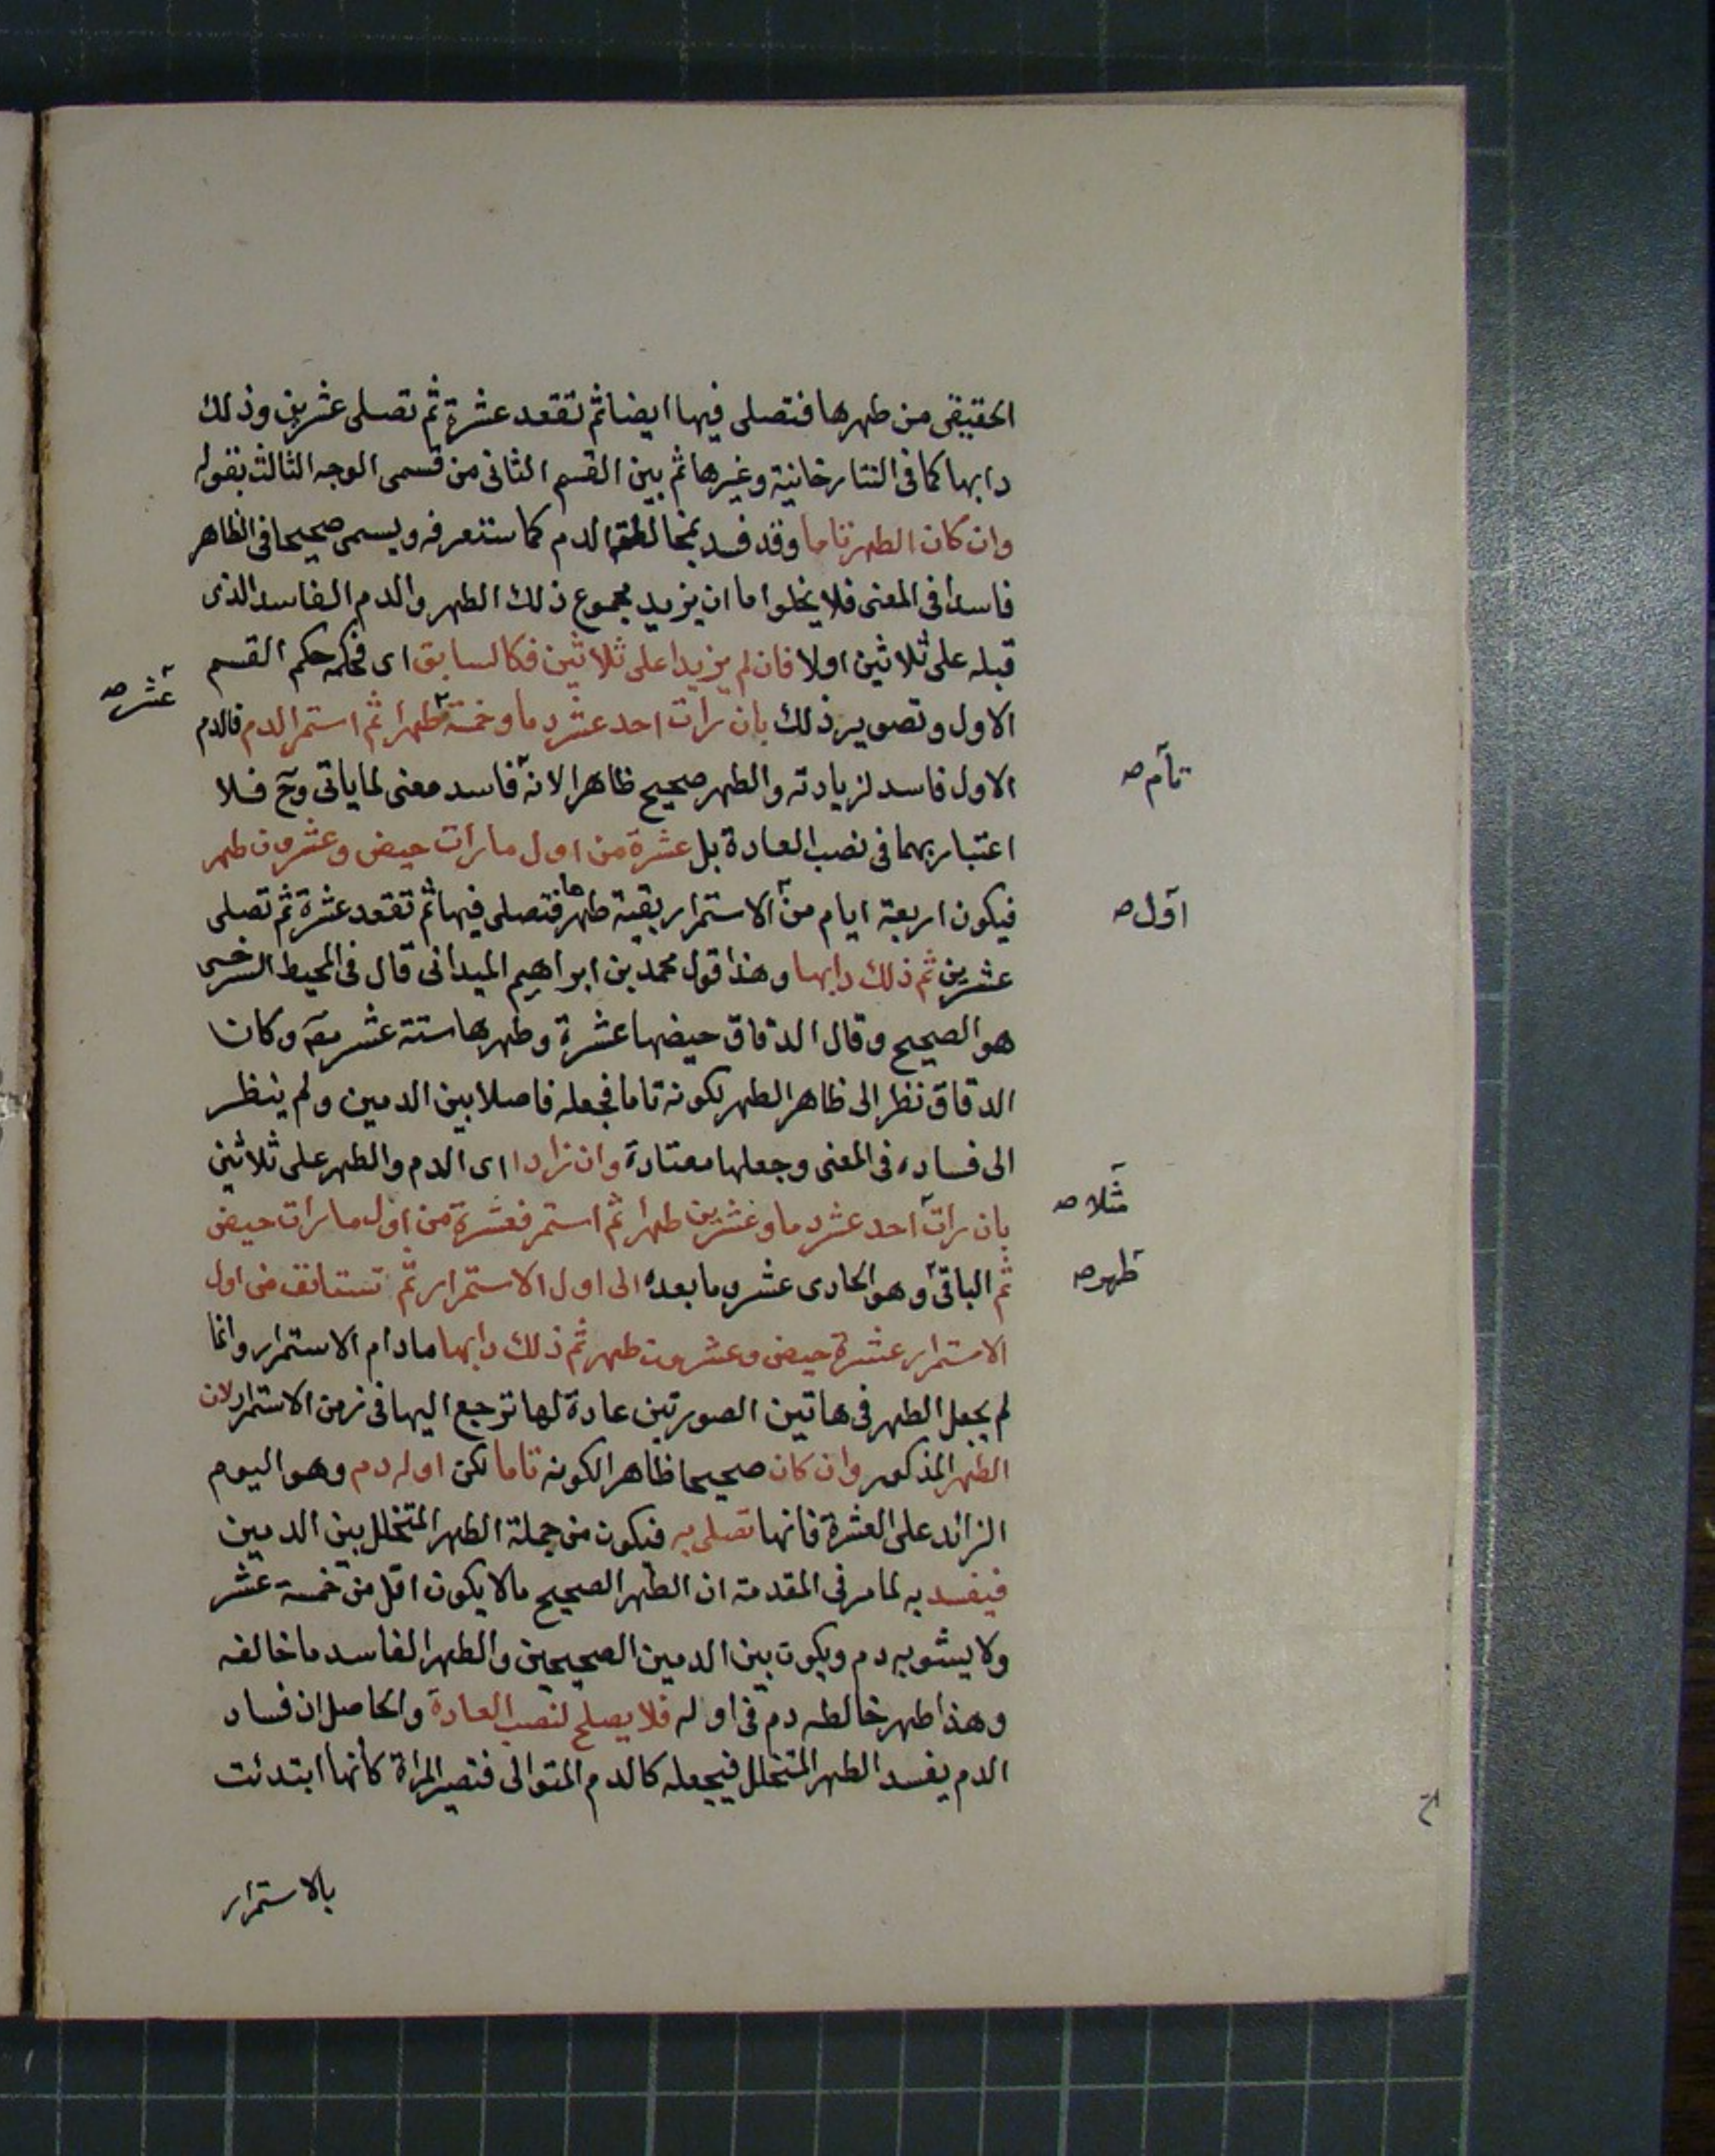 الحقيقى من طهرها فتصلى فيها ايضا ثم تقعد عشرة ثم تصلى عشرين وذلك
دابها كما فى التتارخانية وغيرها ثم بين القسم الثانى من قسمى الوجه الثالث بقوله
وان كان الطهر تاما وقد فسد بمخالطة الدم كما ستعرفه ويسمى صحيحا فى الظاهر
فاسدا فى المعنى فلا يخلوا اما ان يزيد مجموع ذلك الطهر والدم الفاسد الذى
قبله على ثلاثين اولا فان لم يزيدا على ثلاثين فكالسابق اى فحكمه حكم القسم
عشر صه
الاول وتصوير ذلك بان رات احد عشر دما وخمسة طهرا ثم استمر الدم فالدم
الاول فاسد لزيادته والطهر صحيح ظاهرا لانه فاسد معنى لما ياتى وح فلا
تام صه
اعتبار بهما فى نصب العادة بل عشرة من اول ما رات حيض وعشرون طهر
فيكون اربعة ايام من الاستمرار بقية طهرها فتصلى فيها ثم تقعد عشرة ثم تصلى
اول صه
عشرين ثم ذلك دابها وهذا قول محمد بن ابراهيم الميدانى قال فى المحيط السرخسى
هو الصحيح وقال الدقاق حيضها عشرة وطهرها ستة عشر وكان
الدقاق نظر الى ظاهر الطهر لكونه تاما فجعله فاصلا بين الدمين ولم ينظر
الى فساده فى المعنى وجعلها معتادة وان زادا اى الدم والطهر على ثلاثين
مثلا صه
بان رات احد عشر دما وعشرين طهرا ثم استمر فعشرة من اول ما رات حيض
ثم الباقى وهو الحادى عشر وما بعده الى اول الاستمرار ثم تستانف من اول
طهر صه
الاستمرار عشرة حيض وعشرون طهر ثم ذلك دابها ما دام الاستمرار وانما
لم يجعل الطهر فى هاتين الصورتين عادة لها ترجع اليها فى زمن الاستمرار لان
الطهر المذكور وان كان صحيحا ظاهرا لكونه تاما لكن اوله دم وهو اليوم
الزائد على العشرة فانها تصلى به فيكون من جملة الطهر المتخلل بين الدمين
فيفسد به لما مر فى المقدمة ان الطهر الصحيح ما لا يكون اقل من خمسة عشر
ولا يشوبه دم ويكون بين الدمين الصحيحين والطهر الفاسد ما خالفه
وهذا طهر خالطه دم فى اوله فلا يصلح لنصب العادة والحاصل ان فساد
الدم يفسد الطهر المتخلل فيجعله كالدم المتوالى فتصير المراة كانها ابتدئت
بالاستمرار